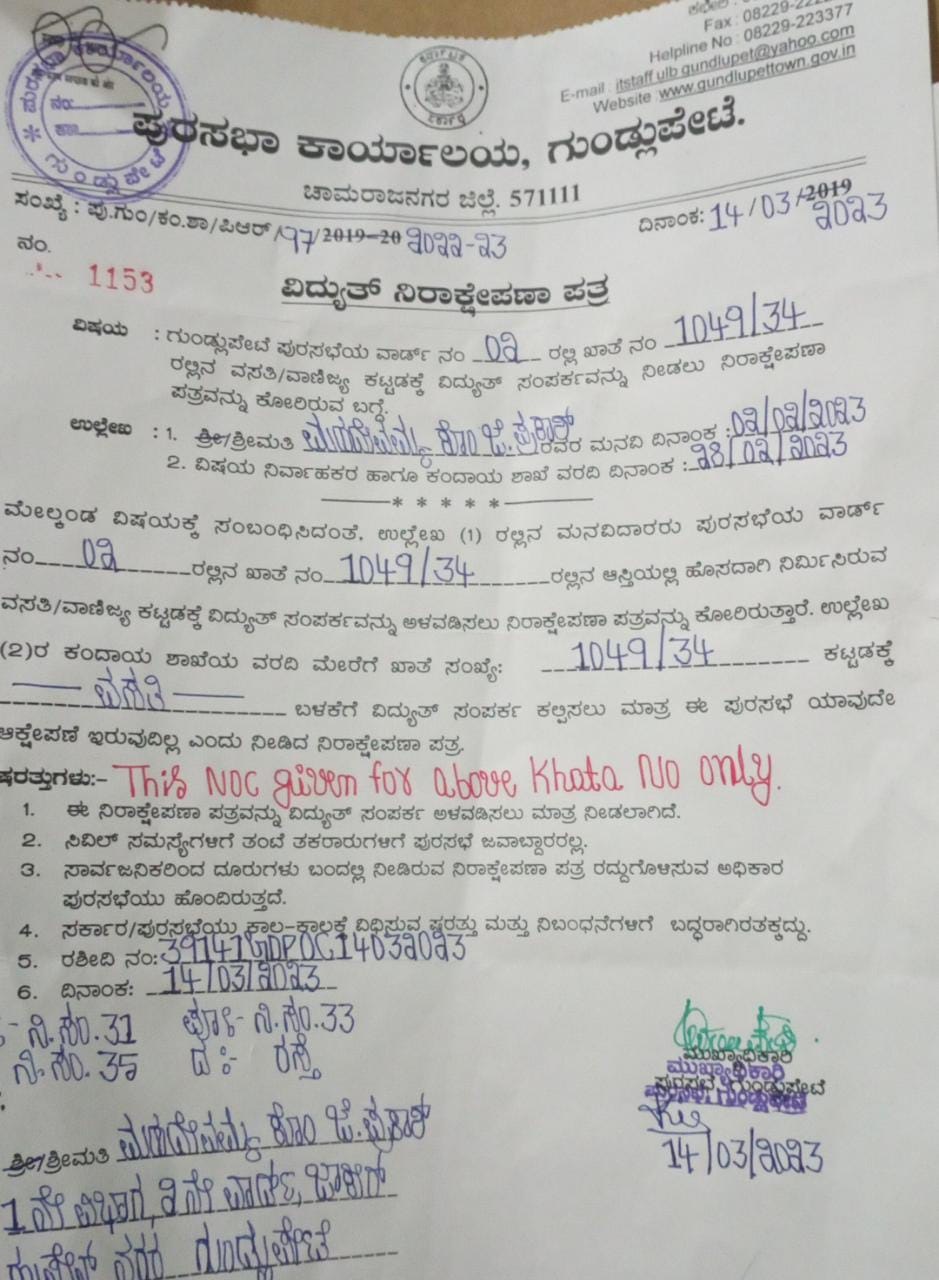 Fax : 08229-222
Helpline No : 08229-223377
E-mail : itstaff ulb gundlupet@yahoo.com
Website :www.gundlupettown.gov.in
ಪುರಸಭಾ ಕಾರ್ಯಾಲಯ, ಗುಂಡ್ಲುಪೇಟೆ.
ಚಾಮರಾಜನಗರ ಜಿಲ್ಲೆ. 571111
ಸಂಖ್ಯೆ : ಪು.ಗುಂ/ಕಂ.ಶಾ/ಪಿಆರ್ /97/2019-20 2022-23
ದಿನಾಂಕ: 14/03/2019 2023
ನಂ.
1153
ವಿದ್ಯುತ್ ನಿರಾಕ್ಷೇಪಣಾ ಪತ್ರ
ವಿಷಯ : ಗುಂಡ್ಲುಪೇಟೆ ಪುರಸಭೆಯ ವಾರ್ಡ್ ನಂ 02 ರಲ್ಲಿ ಖಾತೆ ನಂ 1049/34
ರಲ್ಲಿನ ವಸತಿ/ವಾಣಿಜ್ಯ ಕಟ್ಟಡಕ್ಕೆ ವಿದ್ಯುತ್ ಸಂಪರ್ಕವನ್ನು ನೀಡಲು ನಿರಾಕ್ಷೇಪಣಾ
ಪತ್ರವನ್ನು ಕೋರಿರುವ ಬಗ್ಗೆ.
ಉಲ್ಲೇಖ : 1. ಶ್ರೀ/ಶ್ರೀಮತಿ ಮಹದೇವಮ್ಮ ಕೋಂ ಜೆ.ಪ್ರಕಾಶ್ ರವರ ಮನವಿ ದಿನಾಂಕ :02/02/2023
2. ವಿಷಯ ನಿರ್ವಾಹಕರ ಹಾಗೂ ಕಂದಾಯ ಶಾಖೆ ವರದಿ ದಿನಾಂಕ :28/02/2023
* * * * *
ಮೇಲ್ಕಂಡ ವಿಷಯಕ್ಕೆ ಸಂಬಂಧಿಸಿದಂತೆ, ಉಲ್ಲೇಖ (1) ರಲ್ಲಿನ ಮನವಿದಾರರು ಪುರಸಭೆಯ ವಾರ್ಡ್
ನಂ 02 ರಲ್ಲಿನ ಖಾತೆ ನಂ 1049/34 ರಲ್ಲಿನ ಆಸ್ತಿಯಲ್ಲಿ ಹೊಸದಾಗಿ ನಿರ್ಮಿಸಿರುವ
ವಸತಿ/ವಾಣಿಜ್ಯ ಕಟ್ಟಡಕ್ಕೆ ವಿದ್ಯುತ್ ಸಂಪರ್ಕವನ್ನು ಅಳವಡಿಸಲು ನಿರಾಕ್ಷೇಪಣಾ ಪತ್ರವನ್ನು ಕೋರಿರುತ್ತಾರೆ. ಉಲ್ಲೇಖ
(2)ರ ಕಂದಾಯ ಶಾಖೆಯ ವರದಿ ಮೇರೆಗೆ ಖಾತೆ ಸಂಖ್ಯೆ: 1049/34 ಕಟ್ಟಡಕ್ಕೆ
ವಸತಿ ಬಳಕೆಗೆ ವಿದ್ಯುತ್ ಸಂಪರ್ಕ ಕಲ್ಪಿಸಲು ಮಾತ್ರ ಈ ಪುರಸಭೆ ಯಾವುದೇ
ಆಕ್ಷೇಪಣೆ ಇರುವುದಿಲ್ಲ ಎಂದು ನೀಡಿದ ನಿರಾಕ್ಷೇಪಣಾ ಪತ್ರ.
ಷರತ್ತುಗಳು:- This NOC given for above Khata No only.
1. ಈ ನಿರಾಕ್ಷೇಪಣಾ ಪತ್ರವನ್ನು ವಿದ್ಯುತ್ ಸಂಪರ್ಕ ಅಳವಡಿಸಲು ಮಾತ್ರ ನೀಡಲಾಗಿದೆ.
2. ಸಿವಿಲ್ ಸಮಸ್ಯೆಗಳಿಗೆ ತಂಟೆ ತಕರಾರುಗಳಿಗೆ ಪುರಸಭೆ ಜವಾಬ್ದಾರರಲ್ಲ.
3. ಸಾರ್ವಜನಿಕರಿಂದ ದೂರುಗಳು ಬಂದಲ್ಲಿ ನೀಡಿರುವ ನಿರಾಕ್ಷೇಪಣಾ ಪತ್ರ ರದ್ದುಗೊಳಿಸುವ ಅಧಿಕಾರ
ಪುರಸಭೆಯು ಹೊಂದಿರುತ್ತದೆ.
4. ಸರ್ಕಾರ/ಪುರಸಭೆಯು ಕಾಲ-ಕಾಲಕ್ಕೆ ವಿಧಿಸುವ ಷರತ್ತು ಮತ್ತು ನಿಬಂಧನೆಗಳಿಗೆ ಬದ್ಧರಾಗಿರತಕ್ಕದ್ದು.
5. ರಶೀದಿ ನಂ: 39141GDPOC14032023
6. ದಿನಾಂಕ: 14/03/2023
:- ನಿ.ಸಂ.31 ಪೂ:- ನಿ.ಸಂ.33
ನಿ.ಸಂ. 35 ದ:- ರಸ್ತೆ
ಮುಖ್ಯಾಧಿಕಾರಿ
ಮುಖ್ಯಾಧಿಕಾರಿ
ಪುರಸಭೆ ಗುಂಡ್ಲುಪೇಟೆ
14/03/2023
ಶ್ರೀ/ಶ್ರೀಮತಿ ಮಹದೇವಮ್ಮ ಕೋಂ ಜೆ.ಪ್ರಕಾಶ್
1 ನೇ ವಿಭಾಗ, 2 ನೇ ವಾರ್ಡ್, ಜಾಕೀರ್
ಹುಸೇನ್ ನಗರ ಗುಂಡ್ಲುಪೇಟೆ